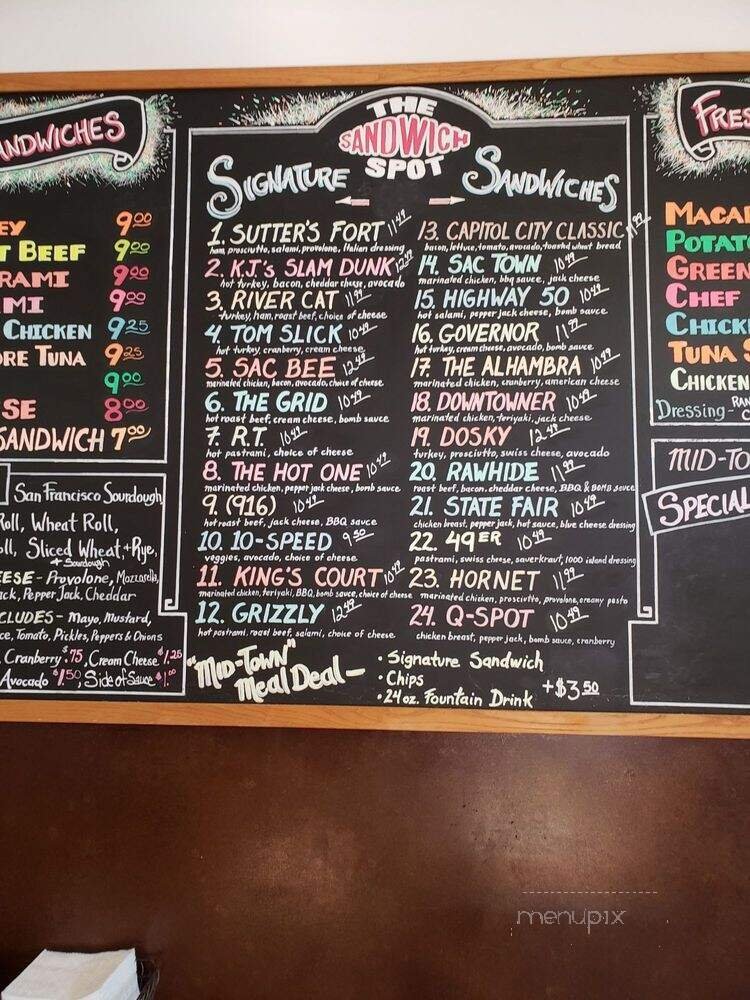 SANDWICHES
9.00
T BEEF 9.00
RAMI 9.00
MI 9.00
CHICKEN 9.25
ORE TUNA 9.25
9.00
SE 8.00
SANDWICH 7.00
San Francisco Sourdough
Roll, Wheat Roll,
Sliced Wheat, + Rye,
+ Sourdough
EESE - Provolone, Mozzarella,
ck, Pepper Jack, Cheddar
CLUDES - Mayo, Mustard,
ce, Tomato, Pickles, Peppers & Onions
Cranberry $.75, Cream Cheese $1.25
Avocado $1.50, Side of Sauce $1.00
THE
SANDWICH
SPOT
SIGNATURE SANDWICHES
1. SUTTER'S FORT 11.49
ham, prosciutto, salami, provolone, Italian dressing
2. K.J.'s SLAM DUNK
hot turkey, bacon, cheddar cheese, avocado
3. RIVER CAT 11.99
turkey, ham, roast beef, choice of cheese
4. TOM SLICK 10.49
hot turkey, cranberry, cream cheese
5. SAC BEE 12.49
marinated chicken, bacon, avocado, choice of cheese
6. THE GRID 10.49
hot roast beef, cream cheese, bomb sauce
7. R.T. 10.49
hot pastrami, choice of cheese
8. THE HOT ONE 10.49
marinated chicken, pepper jack cheese, bomb sauce
9. (916) 10.49
hot roast beef, jack cheese, BBQ sauce
10. 10-SPEED 9.50
veggies, avocado, choice of cheese
11. KING'S COURT 10.49
marinated chicken, teriyaki, BBQ, bomb sauce, choice of cheese
12. GRIZZLY 12.49
hot pastrami, roast beef, salami, choice of cheese
13. CAPITOL CITY CLASSIC 11.99
bacon, lettuce, tomato, avocado, toasted wheat bread
14. SAC TOWN 10.49
marinated chicken, bbq sauce, jack cheese
15. HIGHWAY 50 10.49
hot salami, pepper jack cheese, bomb sauce
16. GOVERNOR 11.99
hot turkey, cream cheese, avocado, bomb sauce
17. THE ALHAMBRA 10.49
marinated chicken, cranberry, american cheese
18. DOWNTOWNER 10.49
marinated chicken, teriyaki, jack cheese
19. DOSKY 12.49
turkey, prosciutto, swiss cheese, avocado
20. RAWHIDE 11.99
roast beef, bacon, cheddar cheese, BBQ & BOMB sauce
21. STATE FAIR 10.49
chicken breast, pepper jack, hot sauce, blue cheese dressing
22. 49ER 10.49
pastrami, swiss cheese, sauerkraut, 1000 island dressing
23. HORNET 11.99
marinated chicken, prosciutto, provolone, creamy pesto
24. Q-SPOT 10.49
chicken breast, pepper jack, bomb sauce, cranberry
"MID-TOWN"
Meal Deal -
• Signature Sandwich
• Chips
• 24 oz. Fountain Drink
+$3.50
FRES
MACA
POTAT
GREEN
CHEF
CHICK
TUNA S
CHICKEN
RAN
Dressing -
MID-TO
SPECIAL
menupix